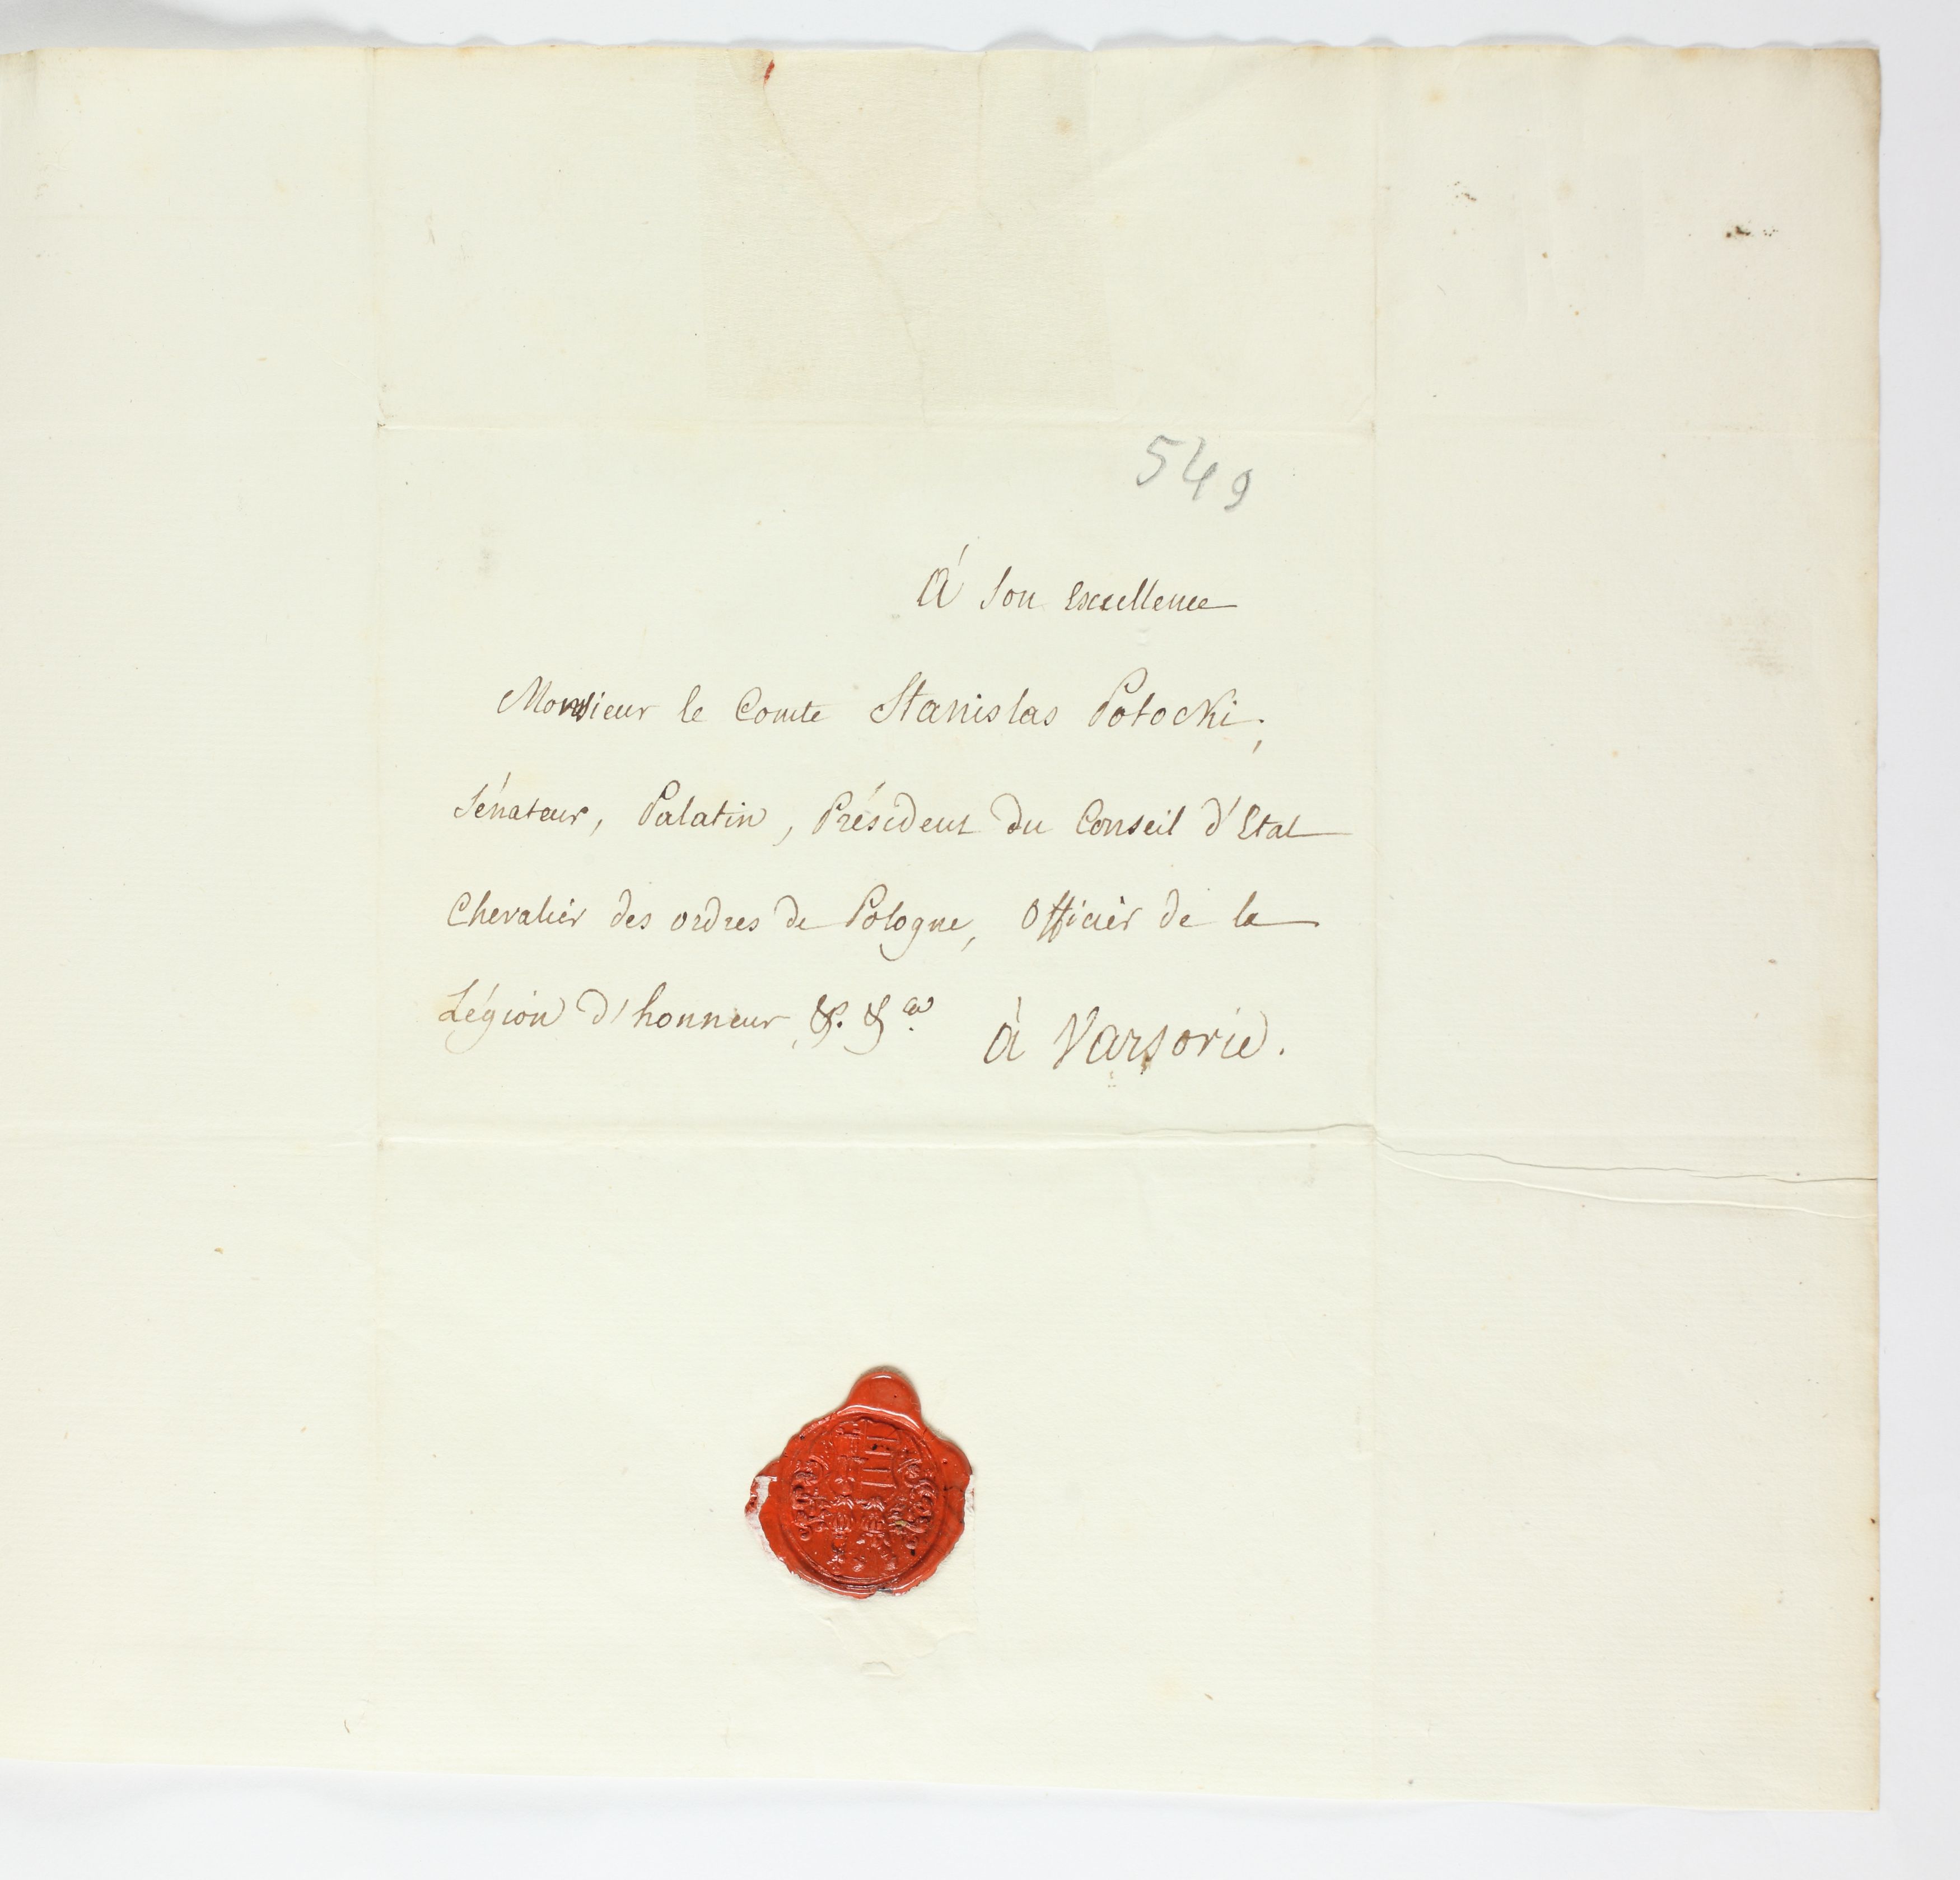 549
À Son Excellence
Monsieur le Comte Stanislas Potocki,
Sénateur, Palatin, Président du Conseil d'Etat
Chevalier des ordres de Pologne, Officier de la
Légion d'honneur, &. &a.
à Varsovie.